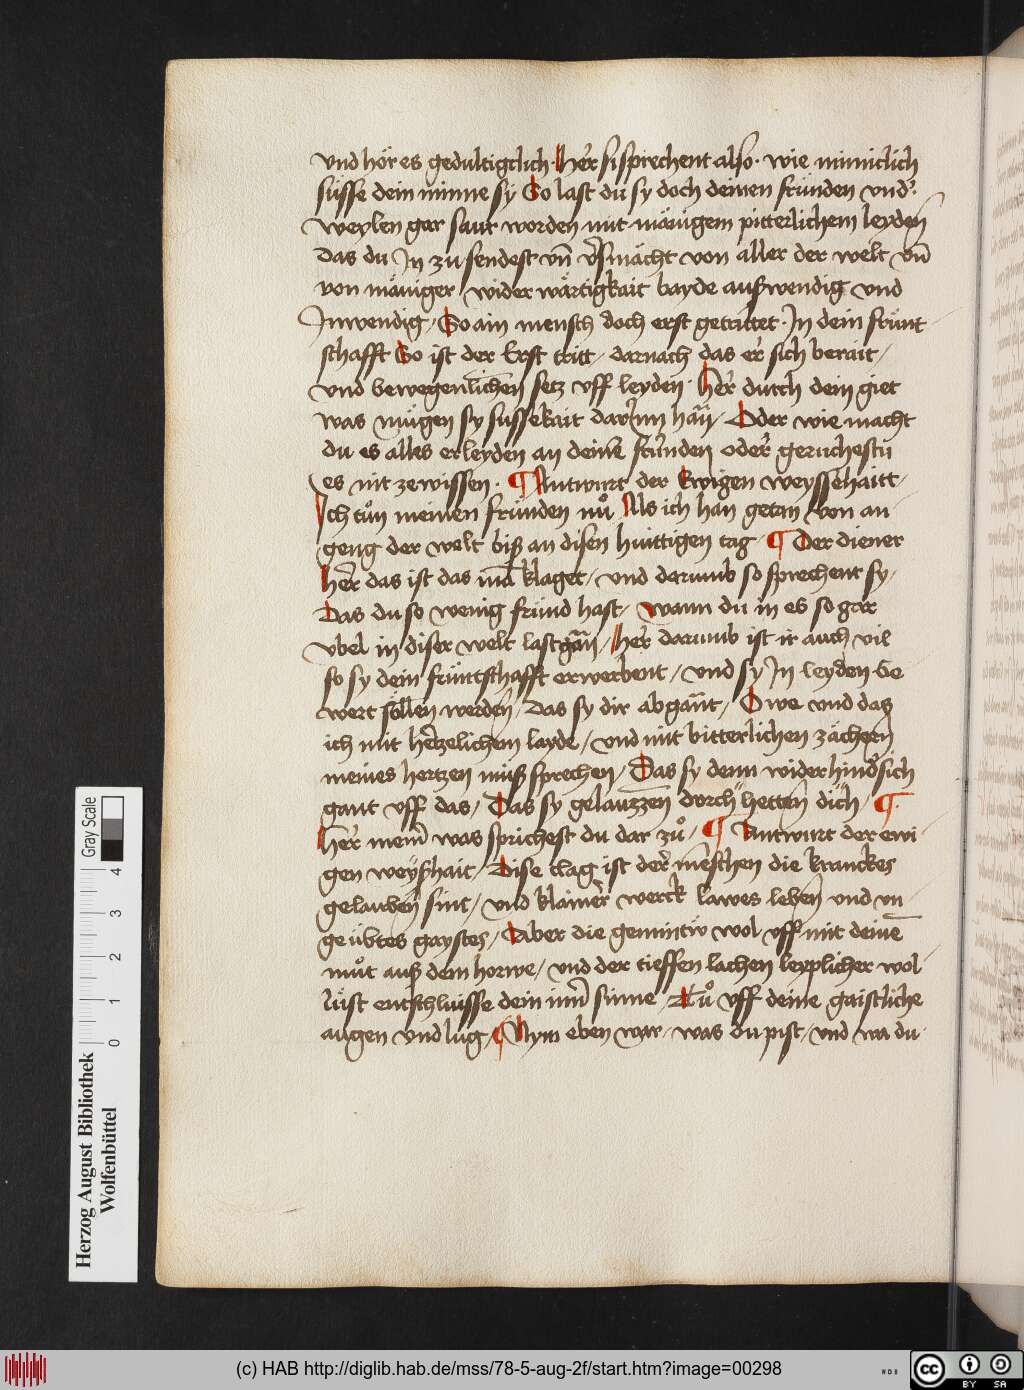 vnd hör es gedultigclich · Her̃ si sprechent also · wie minniclich
süsse dein minne sy So last du sy doch deinen fründen vnder
weylen gar saur worden mit mänigem pitterlichem leyden
das du In zu sendest vñ v̾smächt von aller der welt vñ
von mäniger / wider wärtigkait bayde außwendig vnd
Inwendig / So ain mensch doch erst getrittet · In dein frünt
schafft So ist der Erst tritt / darnach das er sich berait /
vnd bewegenlichen setz vff leyden · Her̃ durch dein giet
was mügen sy sussekait dar Inn hañ / Oder wie macht
du es alles erleyden an deinē frúnden oder geruchestu
es nit zewissen · ¶ Antwurt der Ewigen weyssehaitt /
Ich tůn meinen fründen nů Als ich han getan von an
geng der welt biß an disen huittigen tag · ¶ Der diener
Her̃ das ist das mā klaget / vnd darumb so sprechent sy /
Das du so wenig fründ hast / wann du in es so gar
vbel in diser welt last gãn / Her̃ darumb ist ir auch vil
so sy dein früntschafft erwerbent / vnd sy In leyden be
wert söllen werden / das sy dir abgãnt / Owe vnd das
ich mit hertzelichem layde / vnd mit bitterlichen zächern
meines hertzen müß sprechen / Das sy denn wider hinder sich
gant vff das / Das sy gelauzzen dorch hetten dich / ¶ ·
Her̃ mein̄ was sprichest du dar zů / ¶ Antwurt der ewi
gen weyßhait / Dise clag ist der mēschen die kranckes
gelauben sint / vnd klainer werck lawes leben vnd vn
geübtes gaystes / Aber die gemintiv wol vff mit deinē
můt auß dem horwe / vnd der tieffen lachen leyplicher wol
lüst entschluisse dein inn̄ sinne Tů vff deine gaistliche
augen vnd lug / ¶ Nym eben war / was du pist / vnd wa du ·
Herzog August Bibliothek
Wolfenbüttel
Gray Scale
0 1 2 3 4
(c) HAB http://diglib.hab.de/mss/78-5-aug-2f/start.htm?image=00298
WDB
cc BY SA